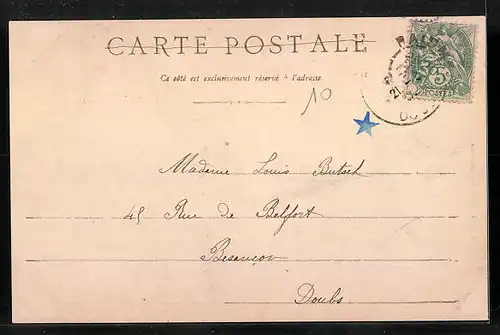 CARTE POSTALE
Ce côté est exclusivement réservé à l'adresse
10
5
POSTES
Madame Louis Butsch
45 Rue de Belfort
Besançon
Doubs